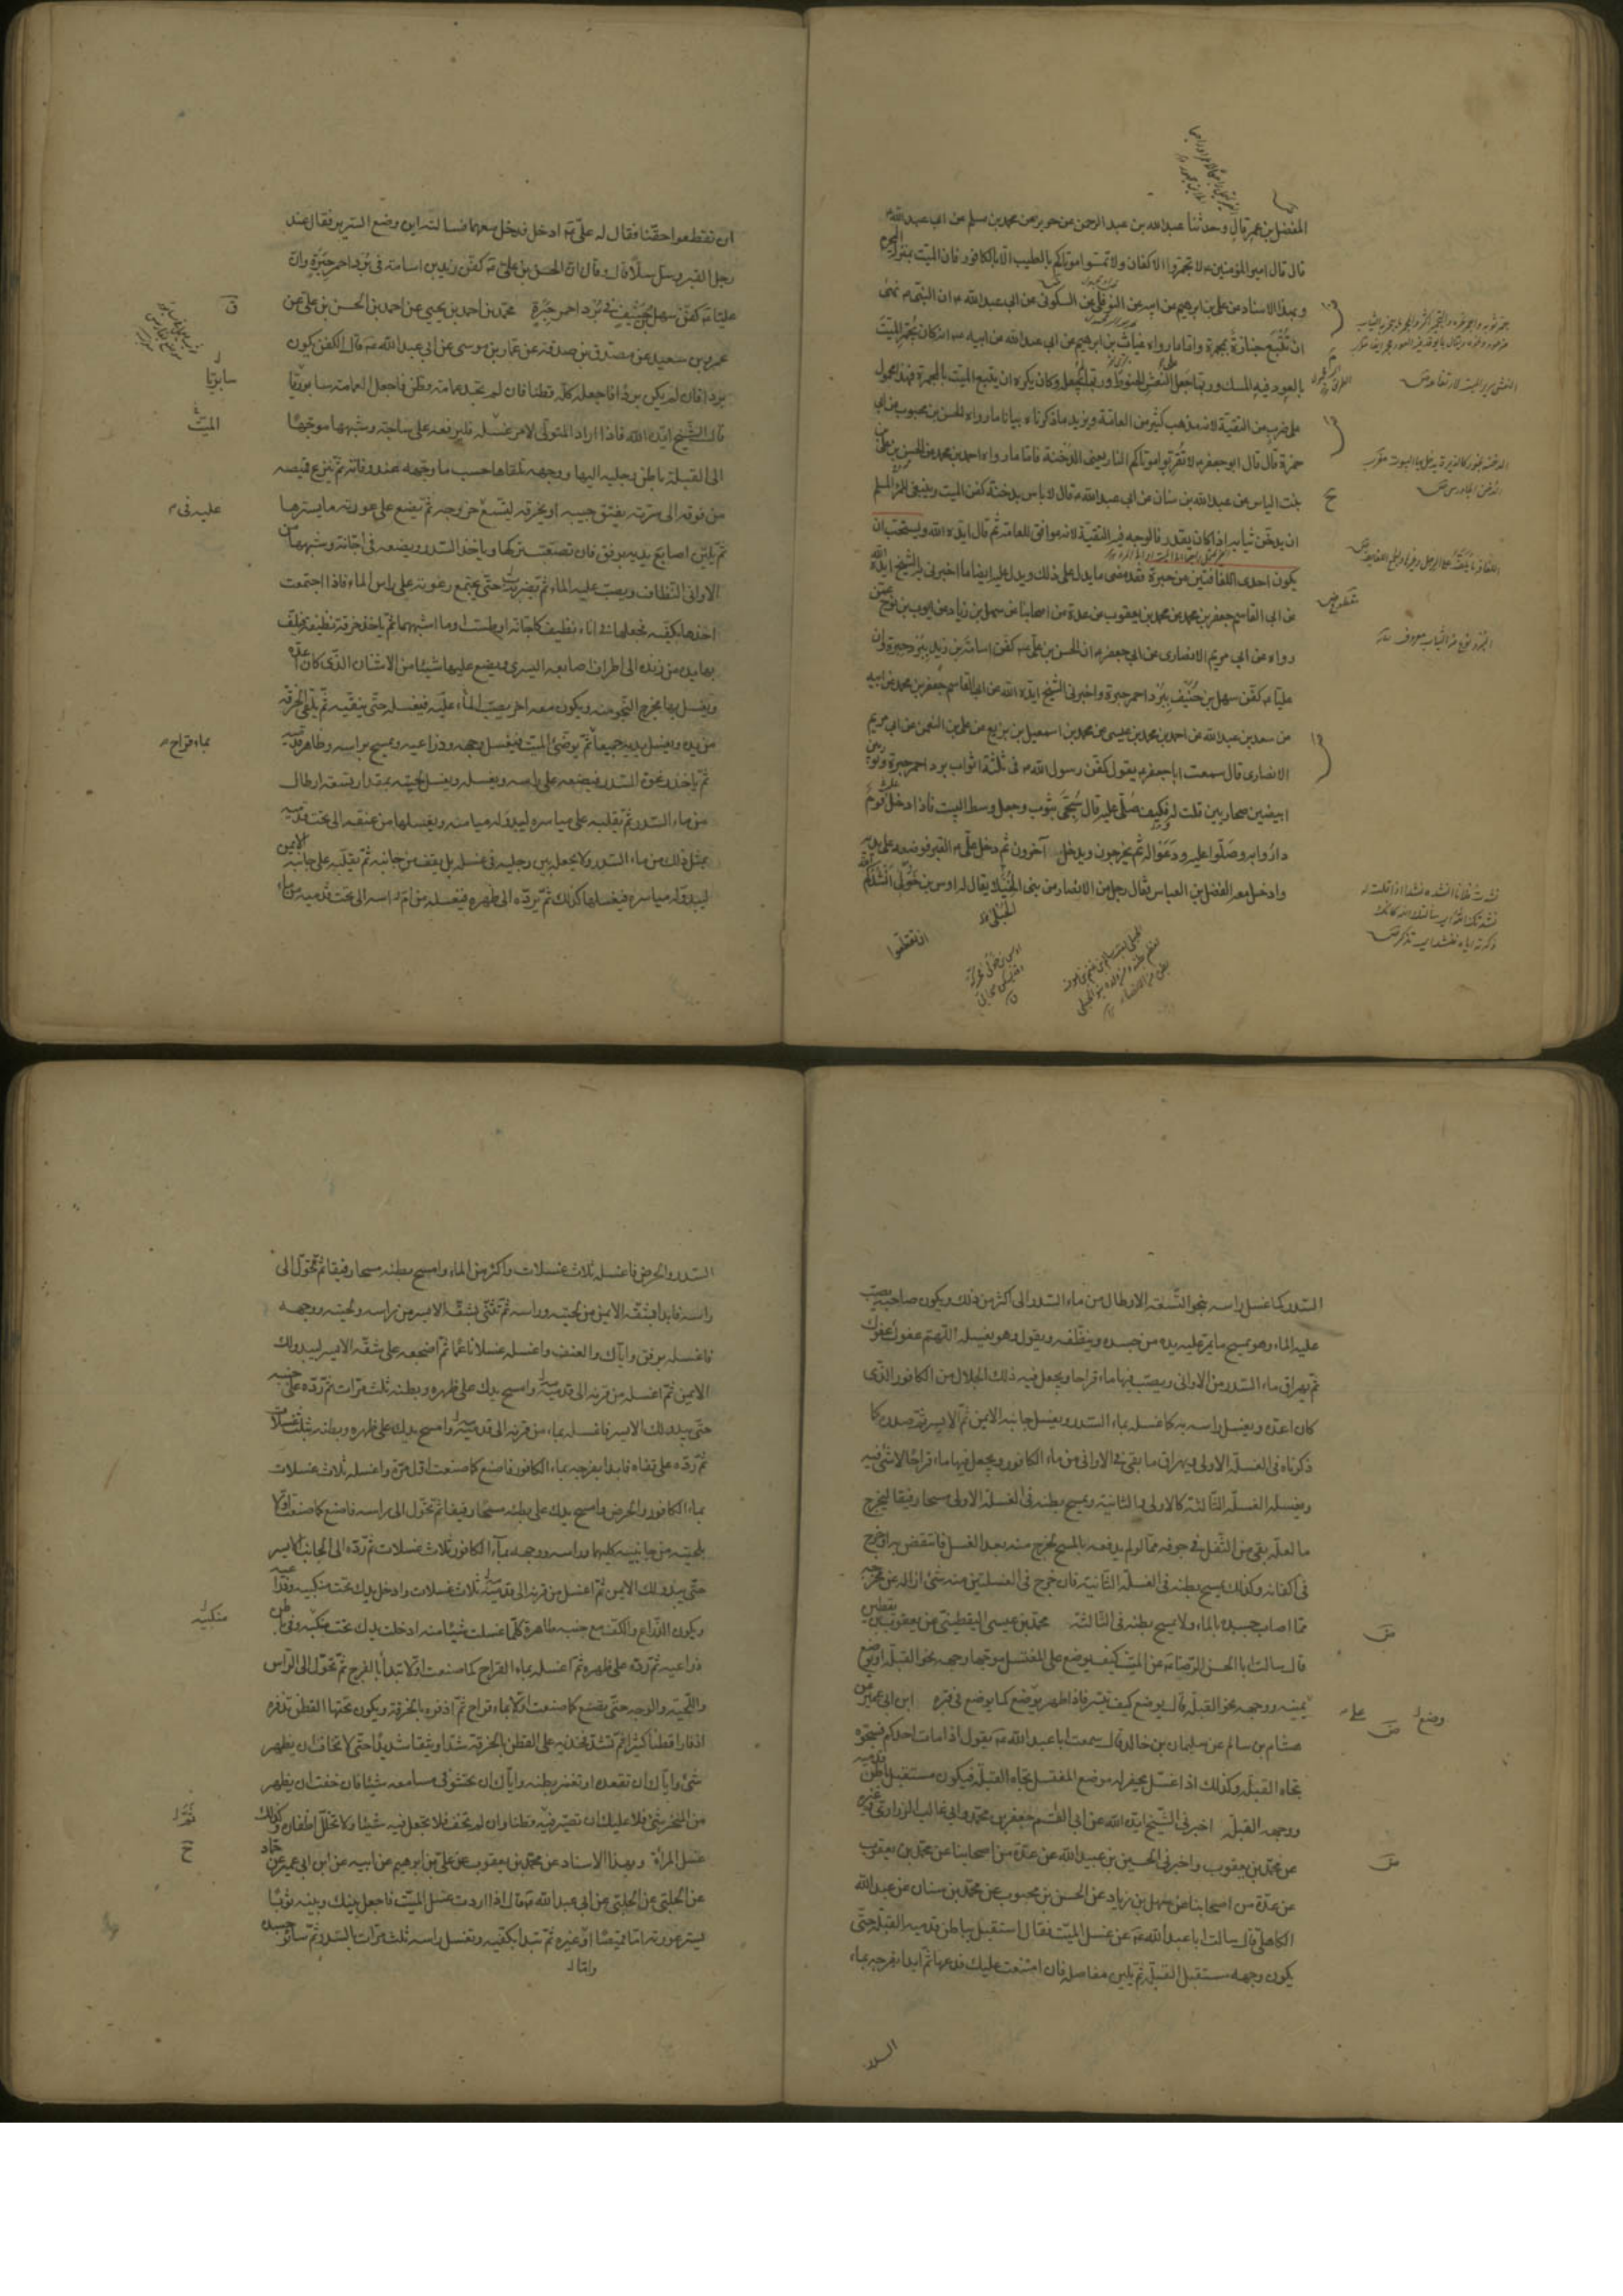 المفضل بن عمر قال وحدثنا عبد الله بن عبد الرحمن عن حريز عن محمد بن مسلم عن ابي عبد الله ع
قال قال امير المؤمنين ع لا تجمروا الاكفان ولا تمسوا موتاكم بالطيب الا بالكافور فان الميت بمنزلة المحرم
وبهذا الاسناد عن علي بن ابراهيم عن ابيه عن النوفلي عن السكوني عن ابي عبد الله ع ان النبي ص نهى
ان تتبع جنازة بمجمرة واما ما رواه غياث بن ابراهيم عن ابي عبد الله عن ابيه ع انه كان يجمر الميت
بالعود فيه المسك وربما جعل على النعش الحنوط وربما لم يجعله وكان يكره ان يتبع الميت بالمجمرة فهذا محمول
على ضرب من التقية لانه مذهب كثير من العامة ويزيد ما ذكرناه بيانا ما رواه الحسن بن محبوب عن ابي
حمزة قال قال ابو جعفر ع لا تقربوا موتاكم النار يعني الدخنة فاما ما رواه احمد بن محمد عن الحسن بن علي
بنت الياس عن عبد الله بن سنان عن ابي عبد الله ع قال لا باس بدخنة كفن الميت وينبغي للمرء المسلم
ان يدخن ثيابه اذا كان يقدر فالوجه فيه التقية لانه موافق للعامة ثم قال ايده الله ويستحب ان
يكون احدى اللفافتين من حبرة فقد مضى ما يدل على ذلك ويدل عليه ايضا ما اخبرني به الشيخ ايده الله
عن ابي القاسم جعفر بن محمد عن محمد بن يعقوب عن عدة من اصحابنا عن سهل بن زياد عن ايوب بن نوح عمن
رواه عن ابي مريم الانصاري عن ابي جعفر ع ان الحسن بن علي ع كفن اسامة بن زيد ببرد حبرة وان
عليا ع كفن سهل بن حنيف ببرد احمر حبرة واخبرني الشيخ ايده الله عن ابي القاسم جعفر بن محمد عن ابيه
عن سعد بن عبد الله عن احمد بن محمد بن عيسى عن محمد بن اسمعيل بن بزيع عن علي بن النعمن عن ابي مريم
الانصاري قال سمعت ابا جعفر ع يقول كفن رسول الله ص في ثلثة اثواب برد احمر حبرة وثوبين
ابيضين صحاريين قلت له وكيف صلي عليه قال سجي بثوب وجعل وسط البيت فاذا دخل قوم
داروا به وصلوا عليه ودعوا له ثم يخرجون ويدخل آخرون ثم دخل علي ع القبر فوضعه على يديه
وادخل معه الفضل بن العباس فقال رجل من الانصار من بني الخيلك يقال له اوس بن خولى انشدكم الله
ان تقطعوا
ان تقطعوا حقنا فقال له علي ع ادخل فدخل معهما فسالته اين وضع السرير فقال عند
رجل القبر وسل سلا قال وقال ان الحسن بن علي ع كفن زيد بن اسامة في برد احمر حبرة وان
عليا ع كفن سهل بن حنيف في برد احمر حبرة محمد بن احمد بن يحيى عن احمد بن الحسن بن علي عن
عمرو بن سعيد عن مصدق بن صدقة عن عمار بن موسى عن ابي عبد الله ع قال الكفن يكون
بردا فان لم يكن بردا فاجعله كله قطنا فان لم تجد عمامة قطن فاجعل العمامة سابوريا
قال الشيخ ايده الله فاذا اراد المتولي لامر غسله فليرفعه على ساجة وشبهها موجها
الى القبلة باطن رجليه اليها ووجهه تلقاها حسب ما وجهه عند وفاته ثم ينزع قميصه
من فوقه الى سرته يفتق جيبه او يخرقه ليتسع خروجه ثم يضع على عورته ما يسترها
ثم يلين اصابع يديه برفق فان تصعبت تركها وياخذ السدر ويضعه في اجانة وشبهها من
الاواني النظاف ويصب عليه الماء ثم يضربه حتى يجتمع رغوته على راس الماء فاذا اجتمعت
اخذها بكفيه فجعلها في اناء نظيف كاجانة او طست وما اشبههما ثم ياخذ خرقة نظيفة فيلف
بها يده من زنده الى اطراف اصابعه اليسرى ويضع عليها شيئا من الاشنان الذي كان اعده
ويغسل بها مخرج النجو منه ويكون معه اخر يصب الماء عليه فيغسله حتى ينقيه ثم يلقي الخرقة
من يده ويغسل يديه جميعا ثم يوضئ الميت فيغسل وجهه وذراعيه ويمسح براسه وظاهر قدميه
ثم ياخذ رغوة السدر فيضعه على راسه ويغسله ويغسل لحيته بمقدار تسعة ارطال
من ماء السدر ثم يقلبه على مياسره ليبدو له ميامنه ويغسلها من عنقه الى تحت قدميه
بمثل ذلك من ماء السدر ولا يجعل بين رجليه في غسله بل يقف من جانبه ثم يقلبه على جانبه الايمن
ليبدو له مياسره فيغسلها كذلك ثم يرده الى ظهره فيغسله من ام راسه الى تحت قدميه بماء
سابوريا
الميت
عليه في
بماء قراح
السدر كما غسل راسه بنحو التسعة الارطال من ماء السدر الى اكثر من ذلك ويكون صاحبه يصب
عليه الماء وهو يمسح ما يمر عليه يده من جسده وينظفه ويقول وهو يغسله اللهم عفوك عفوك
ثم يهراق ماء السدر من الاواني ويصب فيها ماء قراحا ويجعل فيه ذلك الجلال من الكافور الذي
كان اعده ويغسل راسه به كما غسله بماء السدر ويغسل جانبه الايمن ثم الايسر ثم صدره كما
ذكرناه في الغسلة الاولى ويهراق ما بقي في الاواني من ماء الكافور ويجعل فيها ماء قراحا لا شئ فيه
ويغسله الغسلة الثالثة كالاولى والثانية ويمسح بطنه في الغسلة الاولى مسحا رفيقا ليخرج
ما لعله بقي من الثفل في جوفه مما لو لم يدفعه بالمسح لخرج منه بعد الغسل فانتقض به او خرج
في اكفانه وكذلك يمسح بطنه في الغسلة الثانية فان خرج في الغسلتين منه شئ ازاله عن مخرجه
مما اصاب جسده بالماء ولا يمسح بطنه في الثالثة محمد بن عيسى اليقطيني عن يعقوب بن يقطين
قال سالت ابا الحسن الرضا ع عن الميت كيف يوضع على المغتسل موجها وجهه نحو القبلة او يوضع
يمينه ووجهه نحو القبلة قال يوضع كيف تيسر فاذا طهر يوضع كما يوضع في قبره ابن ابي عمير عن
هشام بن سالم عن سليمان بن خالد قال سمعت ابا عبد الله ع يقول اذا مات احدكم فسجوه
تجاه القبلة وكذلك اذا غسل يحفر له موضع المغتسل تجاه القبلة فيكون مستقبل باطن قدميه
ووجهه القبلة اخبرني الشيخ ايده الله عن ابي القسم جعفر بن محمد وابي غالب الزراري وغيره
عن محمد بن يعقوب واخبرني الحسين بن عبيد الله عن عدة من اصحابنا عن محمد بن يعقوب
عن عدة من اصحابنا عن سهل بن زياد عن الحسن بن محبوب عن محمد بن سنان عن عبد الله
الكاهلي قال سالت ابا عبد الله ع عن غسل الميت فقال استقبل بباطن قدميه القبلة حتى
يكون وجهه مستقبل القبلة ثم يلين مفاصله فان امتنعت عليك فدعها ثم ابدا بفرجه بماء
السدر
السدر والحرض فاغسله ثلاث غسلات واكثر من الماء وامسح بطنه مسحا رفيقا ثم تحول الى
راسه فابدا بشقه الايمن من لحيته وراسه ثم تثنى بشقه الايسر من راسه ولحيته ووجهه
فاغسله برفق واياك والعنف واغسله غسلا ناعما ثم اضجعه على شقه الايسر ليبدو لك
الايمن ثم اغسله من قرنه الى قدميه وامسح يدك على ظهره وبطنه ثلث مرات ثم رده على جنبه
حتى يبدو لك الايسر فاغسله بماء من قرنه الى قدميه وامسح يديك على ظهره وبطنه بثلث غسلات
ثم رده على قفاه فابدا بفرجه بماء الكافور فاصنع كما صنعت اول مرة واغسله ثلاث غسلات
بماء الكافور والحرض وامسح يدك على بطنه مسحا رفيقا ثم تحول الى راسه فاصنع كما صنعت اولا
بلحيته من جانبيه كليهما وراسه ووجهه بماء الكافور ثلاث غسلات ثم رده الى الجانب الايسر
حتى يبدو لك الايمن ثم اغسله من قرنه الى قدميه ثلاث غسلات وادخل يدك تحت منكبيه وذراعيه
ويكون الذراع والكف مع جنبه طاهرة كلما غسلت شيئا منه ادخلت يدك تحت منكبيه وفي باطن
ذراعيه ثم رده على ظهره ثم اغسله بماء القراح كما صنعت اولا تبدأ بالفرج ثم تحول الى الراس
واللحية والوجه حتى تصنع كما صنعت اولا بماء قراح ثم اذفره بالخرقة ويكون تحتها القطن تذفره
اذفارا قطنا كثيرا ثم تشد فخذيه على القطن بالخرقة شدا وثيقا شديدا حتى لا تخاف ان يظهر
شئ واياك ان تقعده او تغمز بطنه واياك ان تحشو في مسامعه شيئا فان خفت ان يظهر
من المنخر شئ فلا عليك ان تصير فيه قطنا وان لم تخف فلا تجعل فيه شيئا ولا تخلل اظفاره وكذلك
غسل المرأة وبهذا الاسناد عن محمد بن يعقوب عن علي بن ابراهيم عن ابيه عن ابن ابي عمير عن حماد
عن الحلبي عن ابي عبد الله ع قال اذا اردت غسل الميت فاجعل بينك وبينه ثوبا
يستر عورته اما قميصا او غيره ثم تبدا بكفيه وتغسل راسه ثلث مرات بالسدر ثم سائر جسده
منكبيه